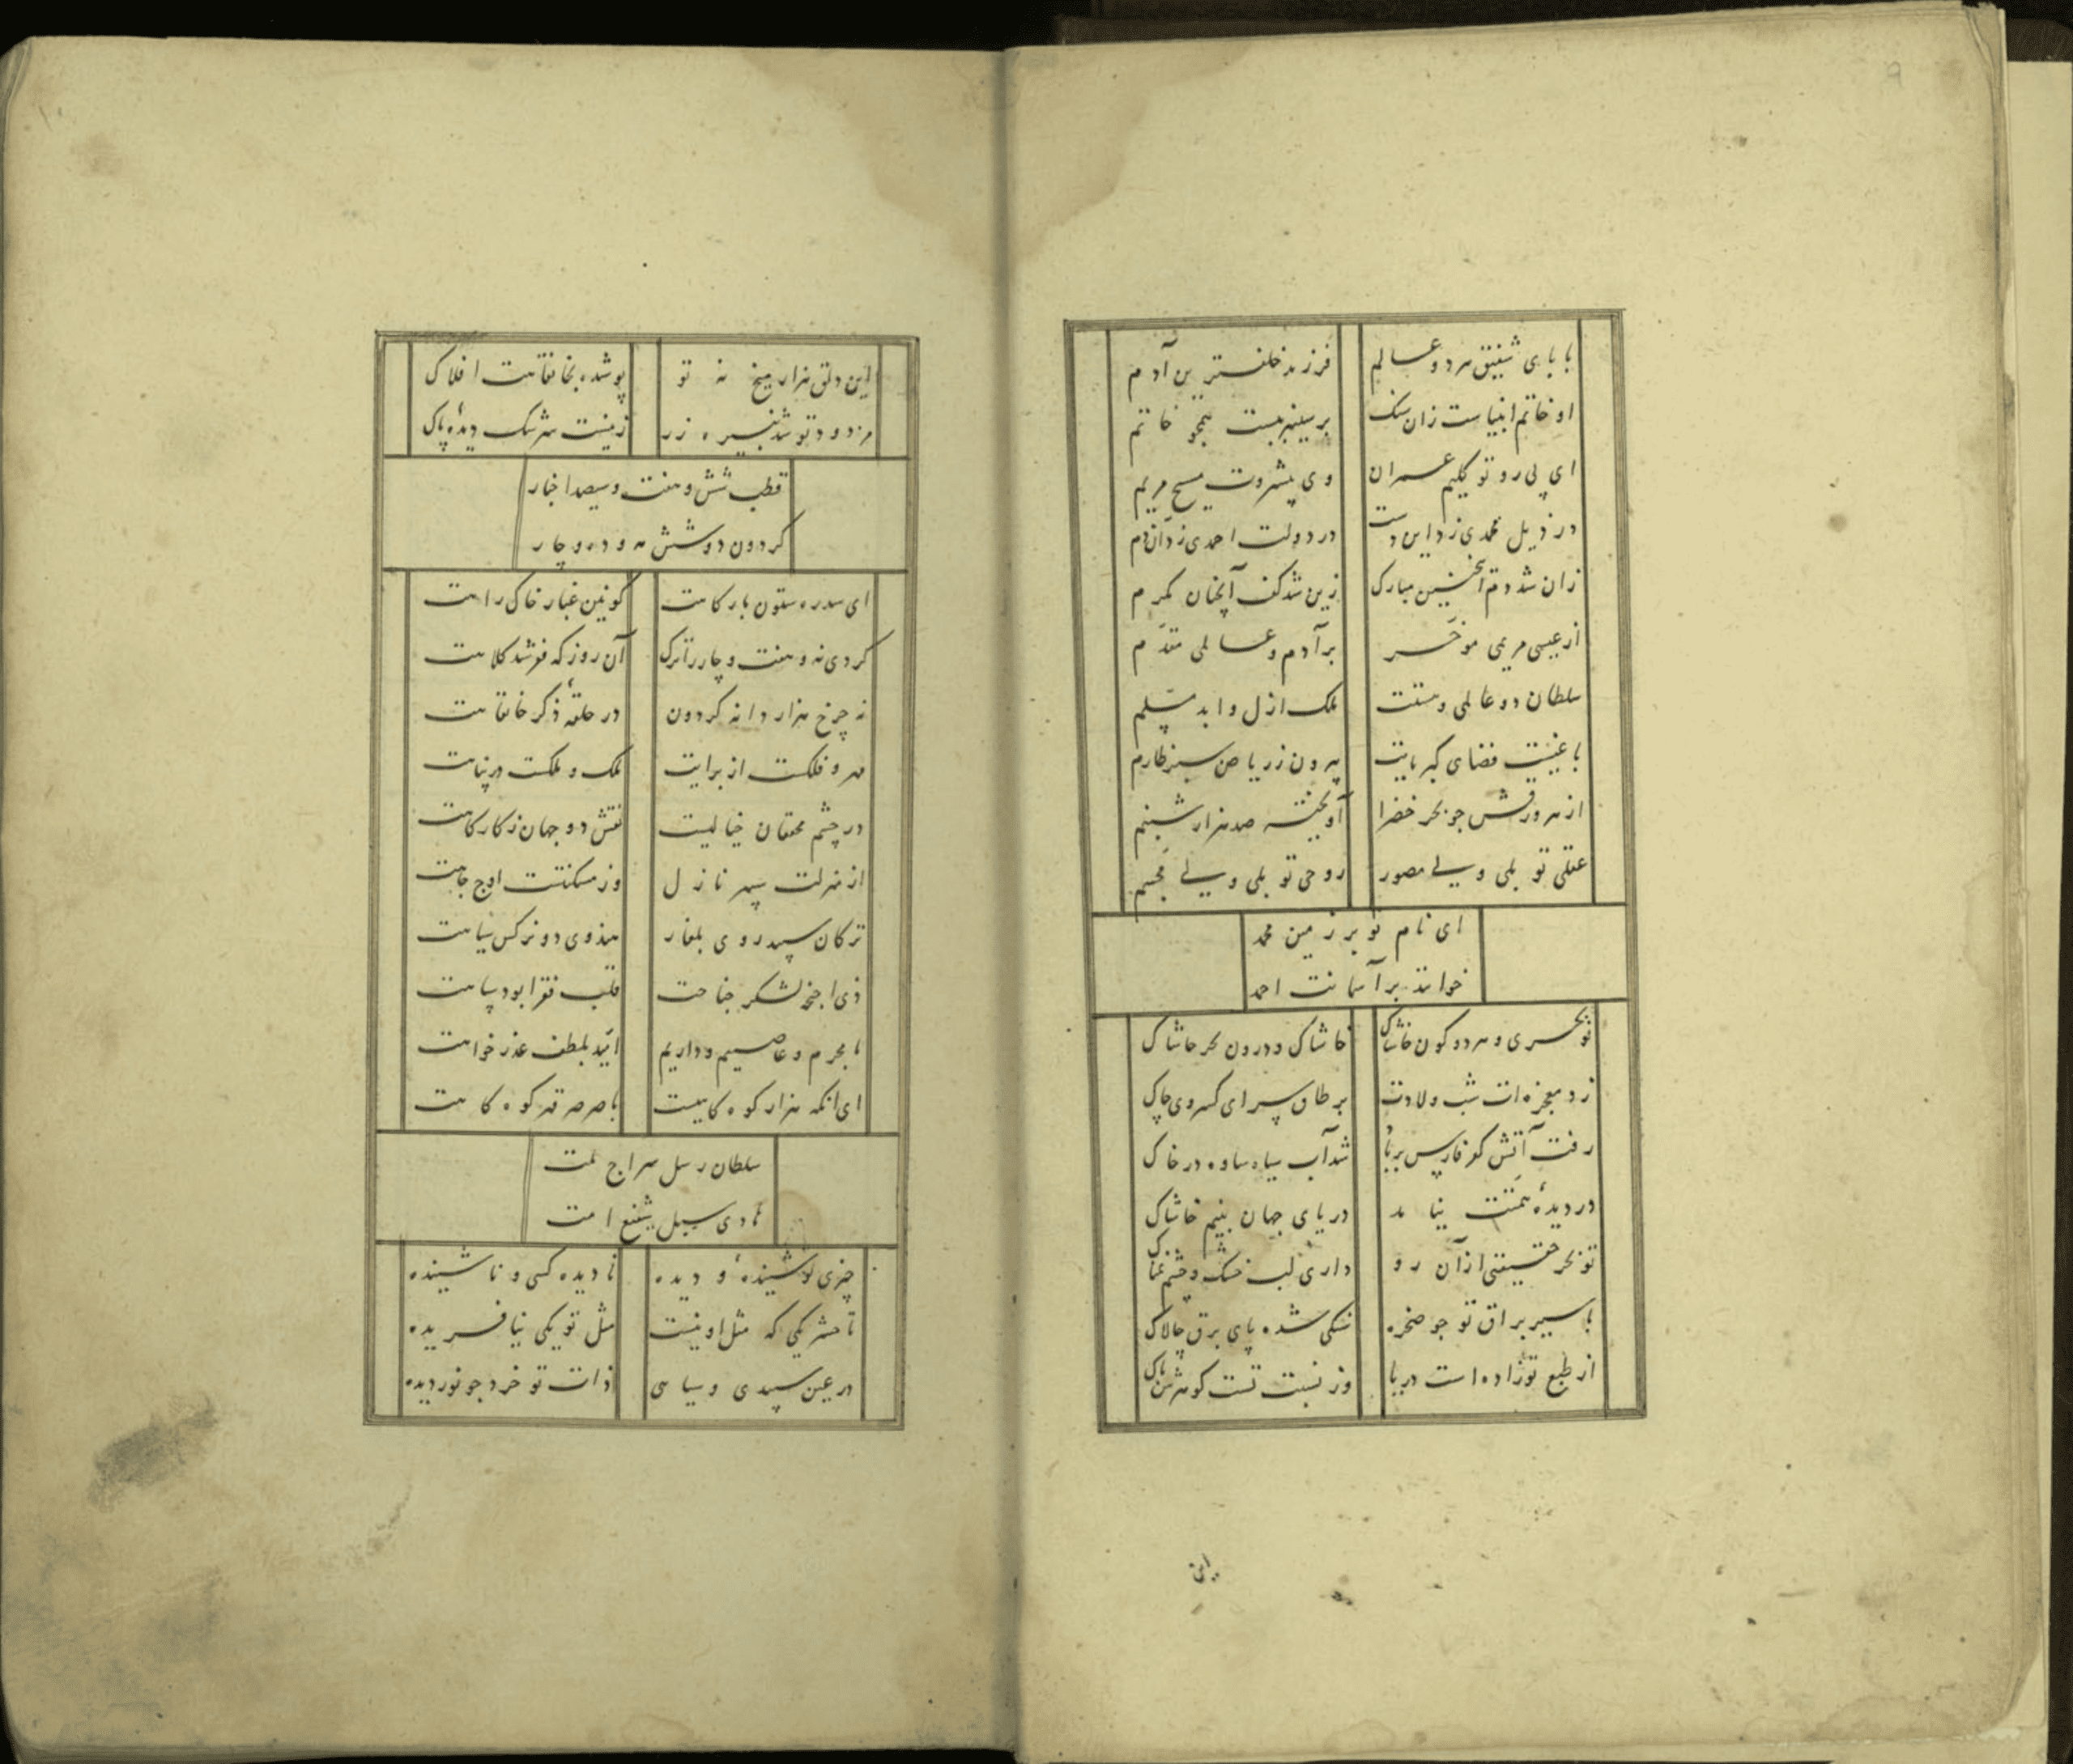 ۹
بابای شفیق هر دو عالم
فرزند خلفترین آدم
او خاتم انبیاست زان سنک
بر سینه ببست همچو خاتم
ای پی رو تو کلیم عمران
وی پیشروت مسیح مریم
در ذیل محمدی زد این دست
در دولت احمدی زد آن دم
زان شد دم اینچنین مبارک
زین شد کف آنچنان مکرم
از عیسی مریمی موخر
بر آدم و عالمی مقدم
سلطان دو عالمی و هستت
ملک ازل و ابد مسلم
باغیست فضای کبریایت
بیرون ز ریاض سبز طارم
از هر ورقش جو بحر خضرا
آویخته صد هزار شبنم
عقلی تو بلی ولی مصور
روحی تو بلی ولی مجسم
ای نام تو بر زمین محمد
خوانند بر آسمانت احمد
تو بحری و هر دو کون خاشاک
خاشاک و درون بحر حاشاک
زد معجزه ات شب ولادت
بر طاق سرای کسروی چاک
رفت آتش کفر فارس بر باد
شد آب سیاه ساوه در خاک
در دیده همتت نیامد
دریای جهان بنیم خاشاک
تو بحر حقیقتی از آن رو
داری لب خشک و چشم نمناک
با سیر براق تو جو صخره
سنکی شده پای برق چالاک
از طبع تو زاده است دریا
وز نسبت تست کوهرش پاک
این
۱۰
این دلق هزار میخ نه تو
پوشیده بخانقاهت افلاک
زر
ز نیست سرشک دیده پاک
قطب شش و هفت و سیصد اخیار
کردون دو شش مه و ده و چار
ای سدره ستون بارکاهت
کونین غبار خاک راهت
کردی نه و هفت و چار را ترک
آن روز که فقر شد کلاهت
نه چرخ هزار دانه کردون
در حلقه ذکر خانقاهت
مهر و فلکست از برایت
ملک و ملکست در پناهت
در چشم محققان خیالیست
نقش دو جهان ز کارکاهت
از منزلت سپهر نازل
وز مسکنتت اوج جاهت
ترکان سپید روی بلغار
هندوی دو نرکس سیاهت
ذی اجنحه لشکر جناحت
قلب فقرا بود سپاهت
ما مجرم و عاصییم و داریم
امید بلطف عذر خواهت
ای آنکه هزار کوه کاهیست
با صرصر قهر کوه کاهت
سلطان رسل سراج ملت
هادی سبل شفیع امت
چیزی تو شنیده و دیده
نادیده کسی و ناشنیده
تا حشر یکی که مثل او نیست
مثل تو یکی نیافریده
در عین سپیدی و سیاهی
ذات تو خرد جو نور دیده